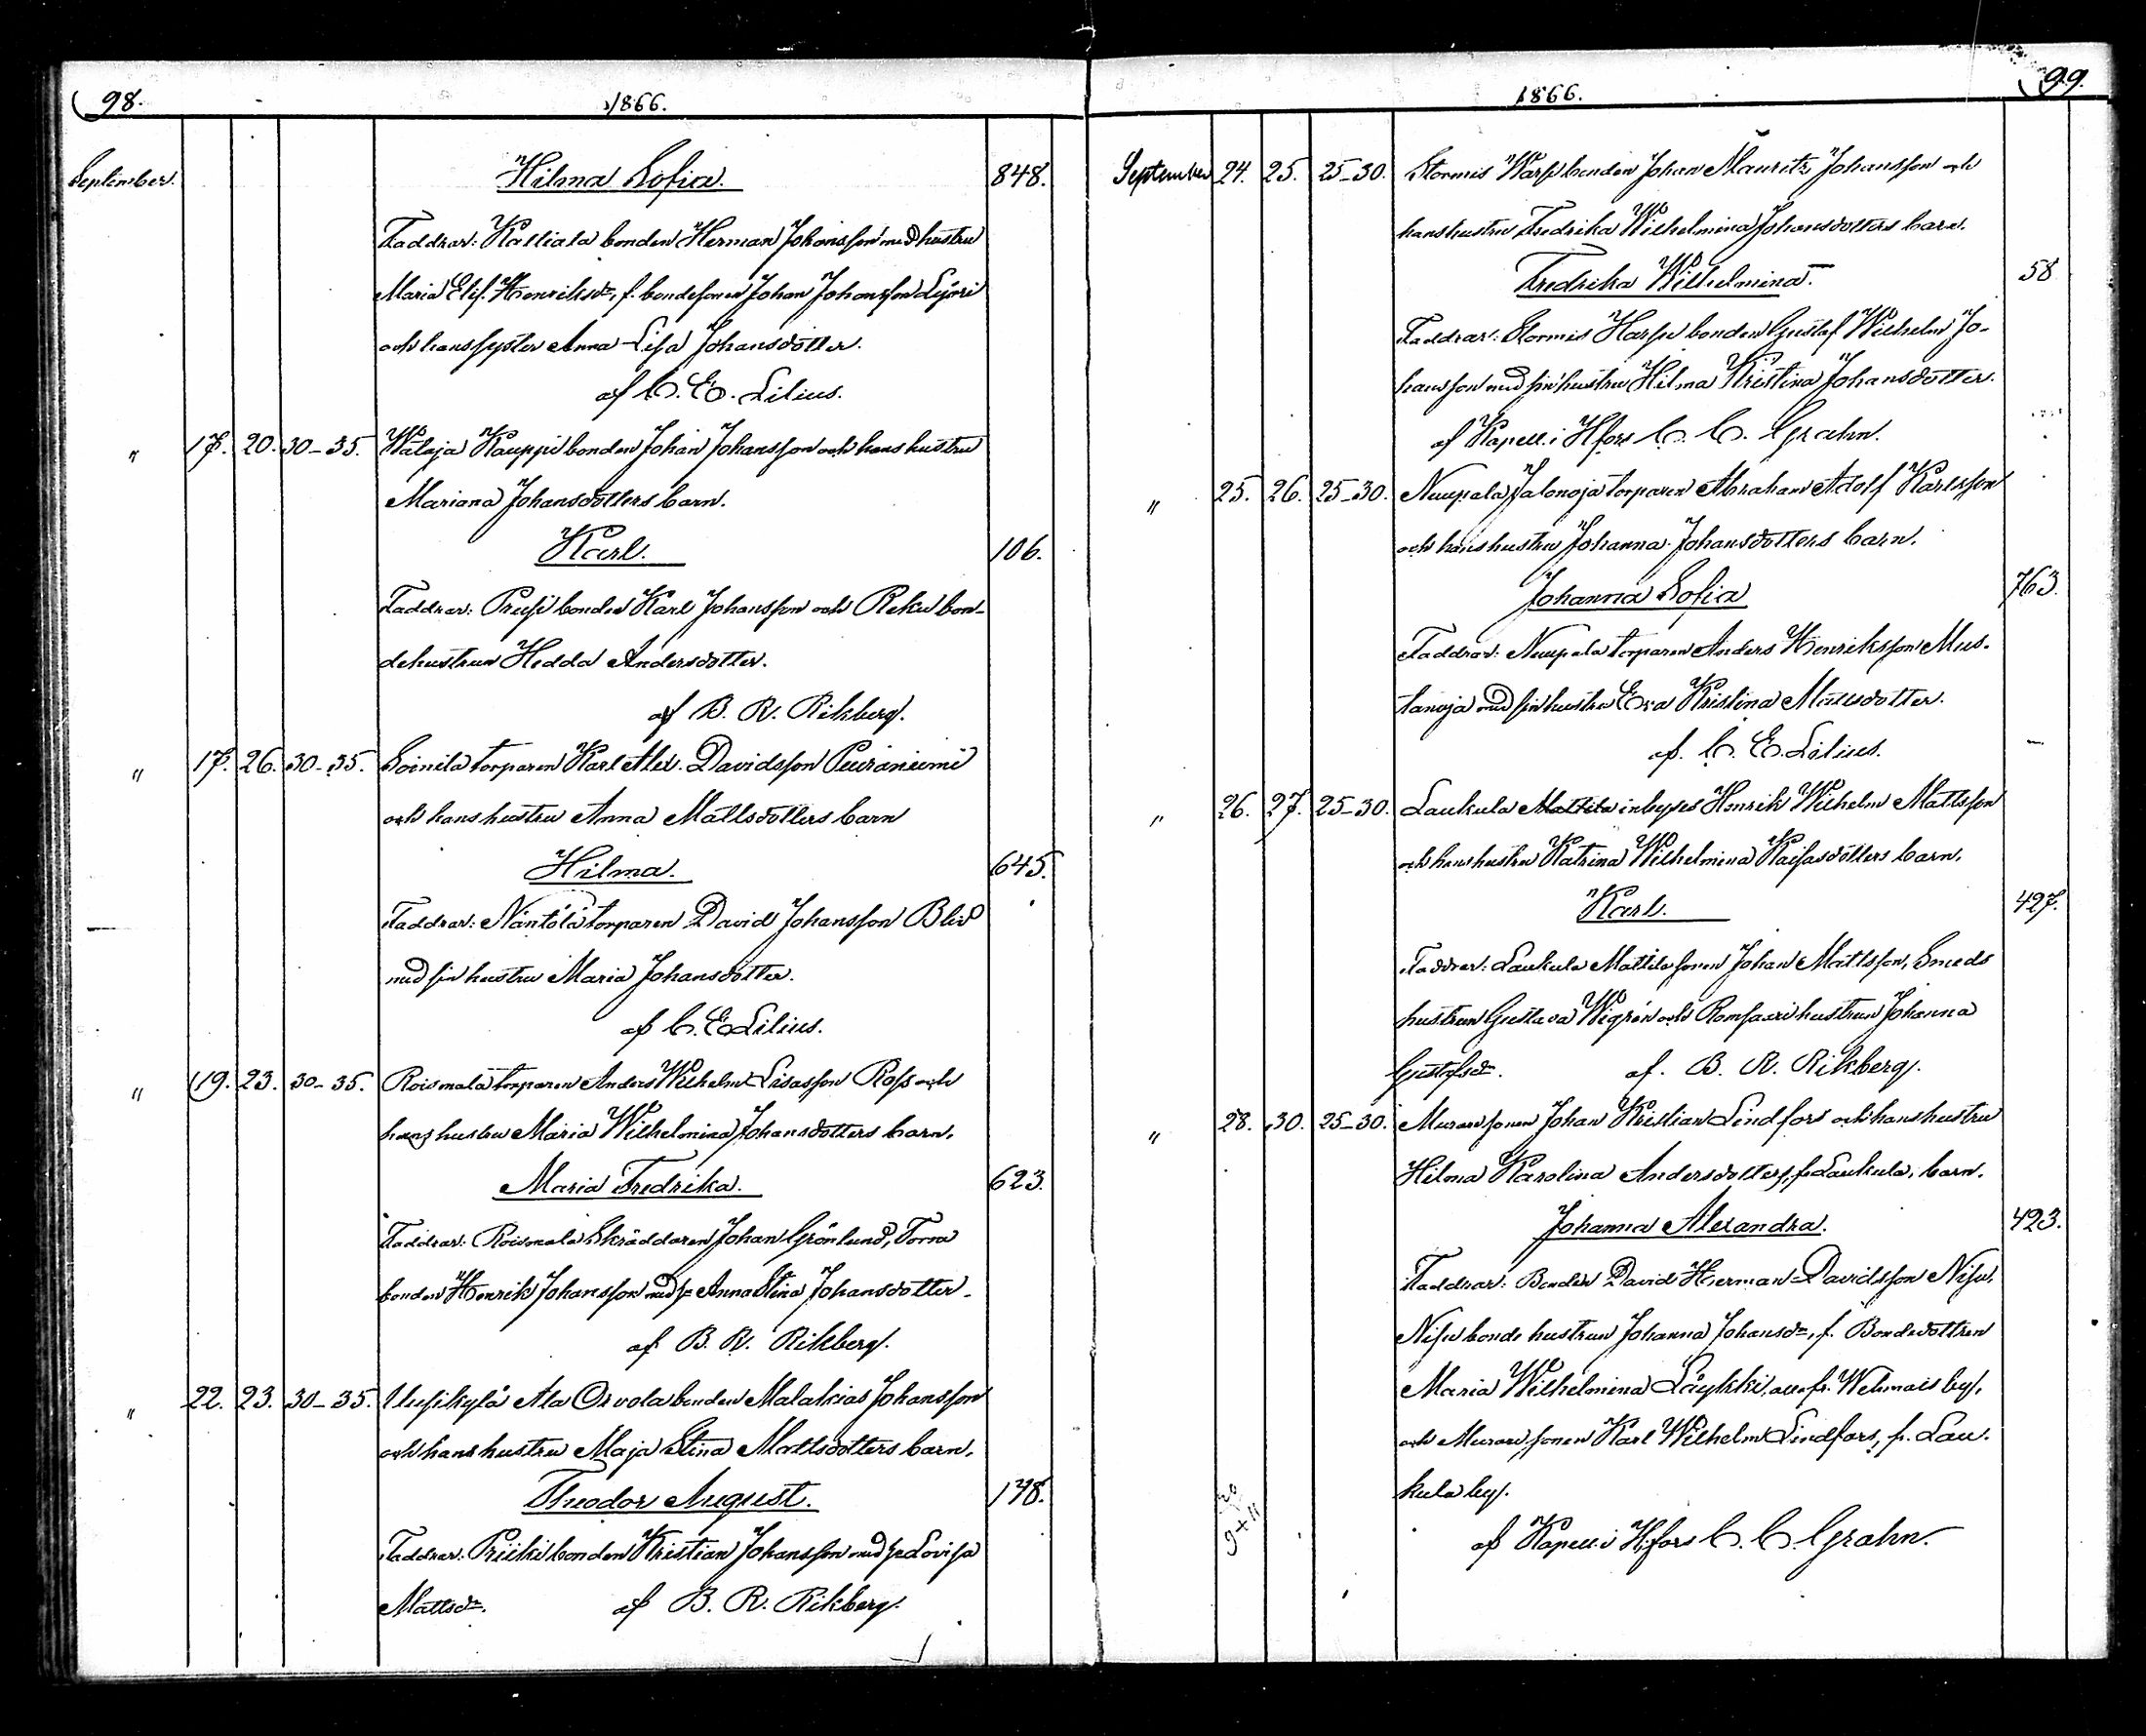 98.
1866.
September.
Hilma Sofia.
848.
Faddrar: Kalliala bonden Herman Johansson med hustru
Maria Elis. Henriksdr, f. bondesonen Johan Johansson Lijori
och hans syster Anna Lisa Johansdotter.
af C. E. Lilius.
" 17. 20. 30-35. Walaja Kauppi bonden Johan Johansson och hans hustru
Mariana Johansdotters barn.
Karl.
106.
Faddrar: Prusi bonden Karl Johansson och Reku bon-
dehustrun Hedda Andersdotter.
af B. R. Rikberg.
" 17. 26. 30-35. Soinila torparen Karl Alex. Davidsson Peuraniemi
och hans hustru Anna Mattsdotters barn
Hilma.
645.
Faddrar: Näntölä torparen David Johansson Blid
med sin hustru Maria Johansdotter.
af C. E. Lilius.
" 19. 23. 30-35. Roismala torparen Anders Wilhelm Lisasson Ross och
hans hustru Maria Wilhelmina Johansdotters barn.
Maria Fredrika.
623.
Faddrar: Roismala Skräddaren Johan Grönlund, Torra
bonden Henrik Johansson med h= Anna Stina Johansdotter.
af B. R. Rikberg.
" 22. 23. 30-35. Uusikylä Ala Orvola bonden Malakias Johansson
och hans hustru Maja Stina Mattsdotters barn.
Theodor August.
148.
Faddrar: Priiki bonden Kristian Johansson med h= Lovisa
Mattsdr. af B. R. Rikberg.
99.
1866.
September 24. 25. 25-30. Stormis Warp bonden Johan Mauritz Johansson och
hans hustru Fredrika Wilhelmina Johansdotters barn.
Fredrika Wilhelmina.
58
Faddrar: Stormis Harju bonden Gustaf Wilhelm Jo-
hansson med sin hustru Hilma Kristina Johansdotter.
af Kapell. i Hfors C. C. Grahn.
" 25. 26. 25-30. Nuupala Jalonoja torparen Abraham Adolf Karlsson
och hans hustru Johanna Johansdotters barn.
Johanna Sofia
763.
Faddrar: Nuupala torparen Anders Henriksson Mus-
tanoja med sin hustru Eva Kristina Mattsdotter.
af C. E. Lilius.
" 26. 27. 25-30. Laukula Mattila inhyses Henrik Wilhelm Mattsson
och hans hustru Katrina Wilhelmina Kaisasdotters barn.
Karl.
427.
Faddrar: Laukula Mattila sonen Johan Mattsson, Smeds
hustrun Gustava Wigren och Romsaari hustrun Johanna
Gustafsdr. af B. R. Rikberg.
" 28. 30. 25-30. Muraresonen Johan Kristian Lindfors och hans hustru
Hilma Karolina Andersdotters, fr Laukula, barn.
Johanna Alexandra.
423.
Faddrar: Bonden David Herman Davidsson Nisu,
Nisu bonde hustrun Johanna Johansdr, f. Bondedottren
Maria Wilhelmina Läykki, alla fr. Wehmais by,
och Muraresonen Karl Wilhelm Lindfors, fr. Lau-
kula by.
af Kapell. i Hfors C. C. Grahn.
20
9+11